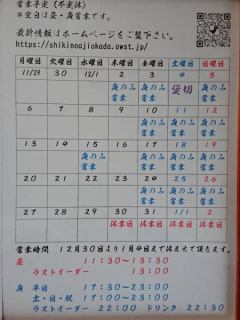 営業予定（不定休）
※空白は昼・夜営業です。
最新情報はホームページをご覧下さい。
https://shikinoajiokada.owst.jp/
月曜日 火曜日 水曜日 木曜日 金曜日 土曜日 日曜日
11/29 30 12/1 2 3 4 5
夜のみ営業 夜のみ営業 貸切 夜のみ営業
6 7 8 9 10 11 12
夜のみ営業 夜のみ営業 夜のみ営業 夜のみ営業
13 14 15 16 17 18 19
夜のみ営業 夜のみ営業 夜のみ営業 夜のみ営業
20 21 22 23 24 25 26
夜のみ営業 夜のみ営業 夜のみ営業 夜のみ営業
27 28 29 30 31 1/1 2
休業日 休業日 休業日 休業日
営業時間 12月30日より1月4日まで休ませて頂きます。
昼 11:30～13:30
ラストオーダー 13:00
夜 平日 17:30～23:00
土・日・祝 17:00～23:00
ラストオーダー 22:00 ドリンク 22:30